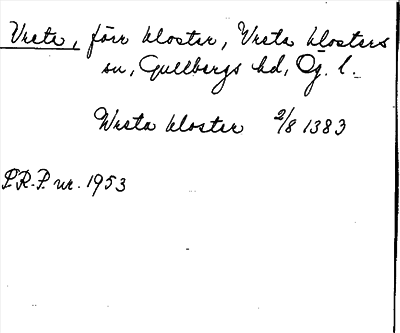 Vreta, förr kloster, Vreta klosters
sn, Gullbergs hd, Ög. l.
Wreta kloster 2/8 1383
P.R.P. nr. 1953